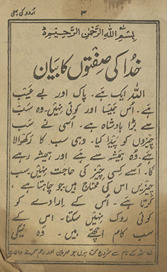 اردو کی پہلی
۳
بسم اللہ الرحمٰن الرحیم
خدا کی صفتوں کا بیان
اللہ ایک ہے۔ پاک اور بے عیب
ہے۔ اُس جیسا اور کوئی نہیں۔ وہ سب
سے بڑا بادشاہ ہے۔ اُسی نے سب
چیزوں کو پیدا کیا۔ وہی سب کا رکھوالا
ہے۔ وہ ہمیشہ سے ہے اور ہمیشہ رہے
گا۔ اُسے کسی چیز کی حاجت نہیں۔ سب
چیزیں اس کی محتاج ہیں جو چاہتا ہے
کرتا ہے۔ اُس کے ارادے کو
کوئی روک نہیں سکتا۔ اس کے
سب کام اچھے ہیں۔ وہ نیکی